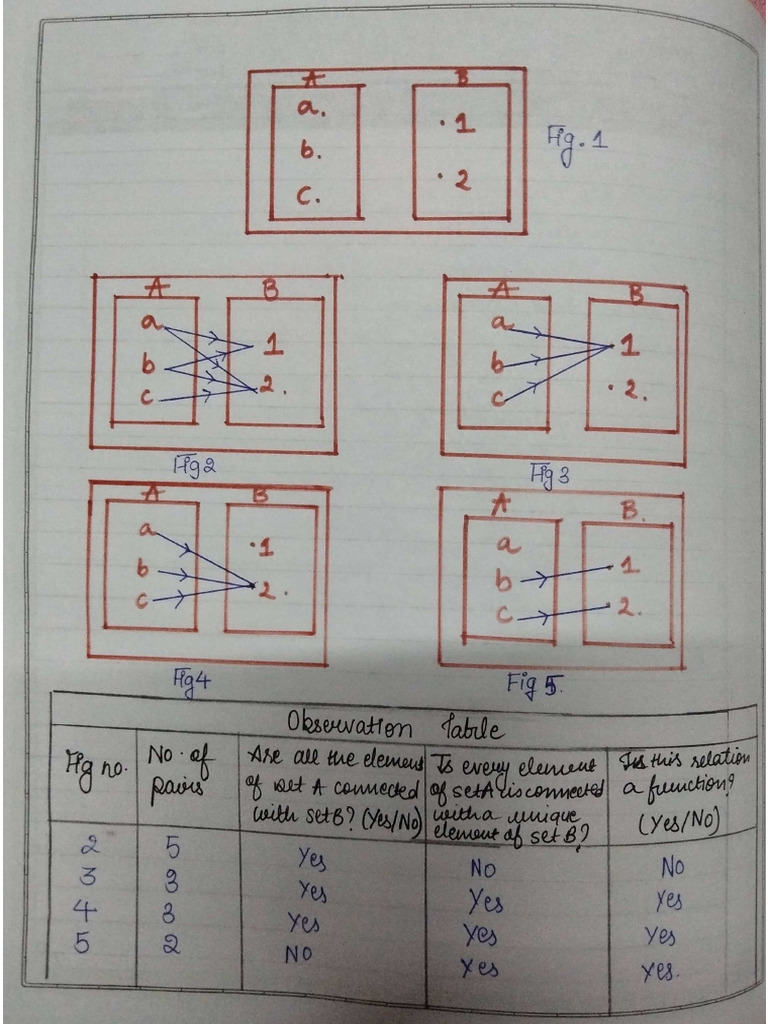 A B
a. . 1
b.
. 2
c.
Fig. 1
A B
a
1
b
2.
c
Fig 2
A B
a
1
b
. 2.
c
Fig 3
A B
a
. 1
b
2.
c
Fig 4
A B.
a
1
b
2.
c
Fig 5.
Observation Table
Fig no. No. of pairs Are all the element of set A connected with set B? (Yes/No) Is every element of set A is connected with a unique element of set B? Is this relation a function? (Yes/No)
2 5 Yes No No
3 3 Yes Yes Yes
4 3 Yes Yes Yes
5 2 No Yes Yes.